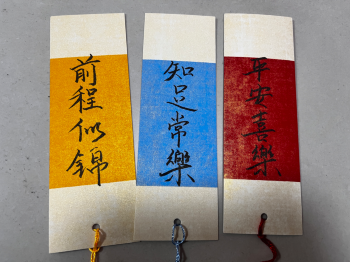 前程似錦
知足常樂
平安喜樂